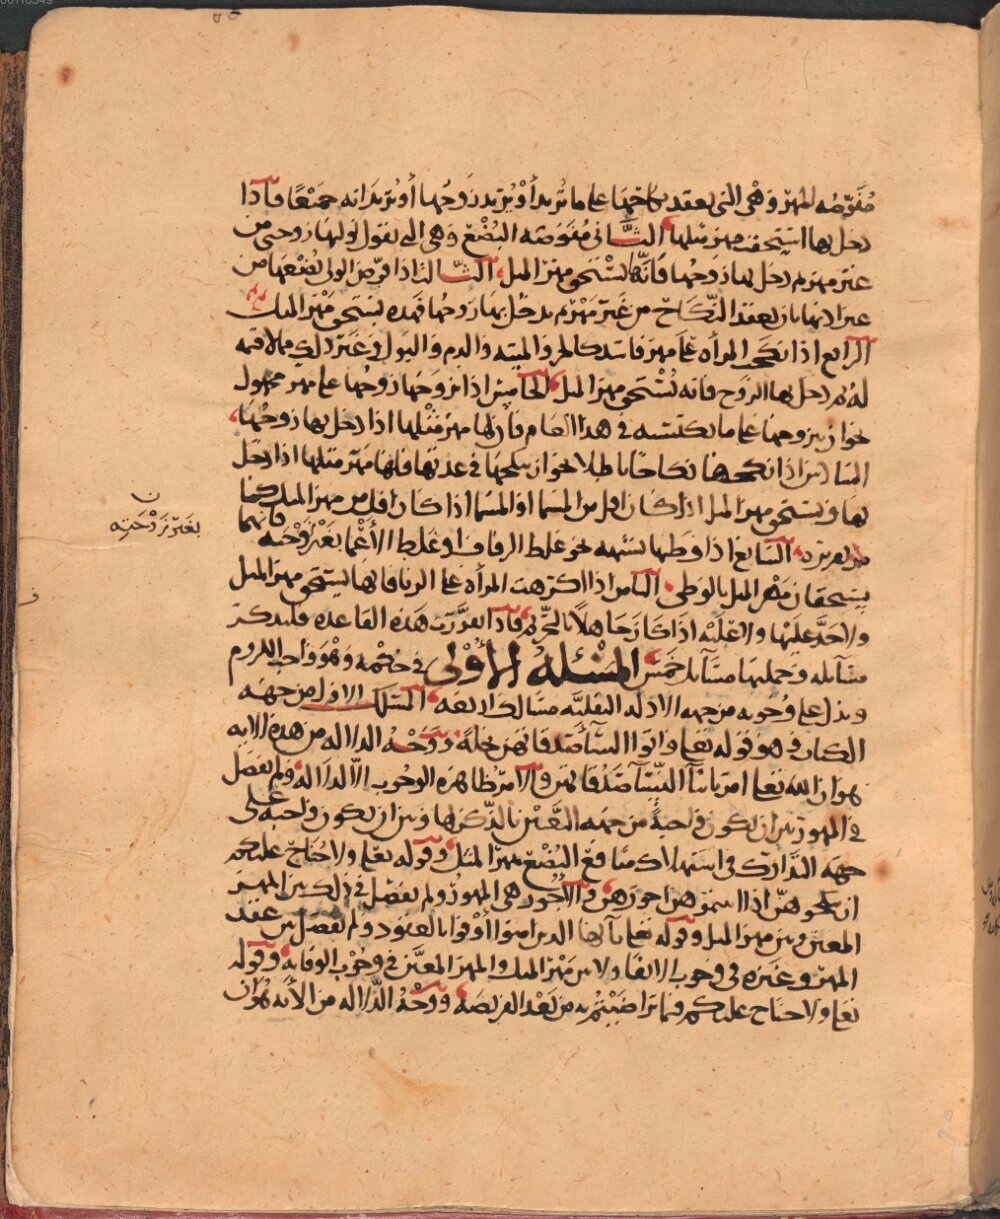 مفوضه المهر وهي التي يعقد نكاحها على ما تريد أو يريد زوجها أو يريدانه جميعًا فاذا
دخل بها استحقت مهر مثلها الثاني مفوضه البضع وهي التي يقول وليها زوجتى من
غير مهر ثم دخل بها زوجها فانها تستحق مهر المثل الثالث اذا فوض الولى بضعها من
غير اذنها بان يعقد النكاح من غير مهر ثم يدخل بها زوجها فهذه تستحق مهر المثل
الرابع اذا نكحت المرأه على مهر فاسد كالخمر والميته والدم والبول وغير ذلك مما لا قيمه
له ثم دخل بها الزوج فانه تستحق مهر المثل الخامس اذا تزوجها زوجها على مهر مجهول
نحو ان يتزوجها على ما يكتسبه في هذا العام فان لها مهر مثلها اذا دخل بها زوجها
السادس اذا نكحها نكاحًا باطلا نحو ان ينكحها في عدتها فلها مهر مثلها اذا دخل
بها وتستحق مهر المثل اذا كان اقل من المسما او المسما اذا كان اقل من مهر المثل كما
تقريره السابع اذا وطيها بشبهه نحو غلط الزفاف او غلط الأعما بغير زوجته فانهما
يستحقان مهر المثل بالوطى الثامن اذا اكرهت المرأه على الزنا فانها تستحق مهر المثل
ولا حد عليها ولا عليه اذا كان جاهلاً بالتحريم فاذا تقررت هذه القاعده فلنذكر
مسائله وجملتها مسائل خمس المسئلة الأولى في حكمه وهو واجب اللزوم
ويدل على وجوبه من جهه الادله النقليه مسالك اربعه المسلك الاول من جهه
الكتاب وهو قوله تعلى واتوا النسآ صدقاتهن نحله ووجه الدلاله من هذه الايه
هو ان الله تعلى امر باتيآ النسآ صدقاتهن والامر ظاهره الوجوب الا لدلاله ولم يفصل
في المهور بين ان يكون واجبة من جهه التعيين بالذكر لها وبين ان يكون واجبه على
جهه التدارك في استهلاك منافع البضع مهر المثل وقوله تعلى ولا جناح عليكم
ان تنكحوهن اذا اتيتموهن اجورهن والأجور هي المهور ولم يفصل في ذلك بين المهر
المعين وبين مهر المثل وقوله تعلى يآ ايها الذين امنوا أوفوا بالعقود ولم يفصل بين عقد
المهر وغيره في وجوب الايفا ولا بين مهر المثل والمهر المعين في وجوب الوفا به وقوله
تعلى ولا جناح عليكم فيما تراضيتم به من بعد الفريضه ووجه الدلاله من الأيه هو ان
بغير زوجته